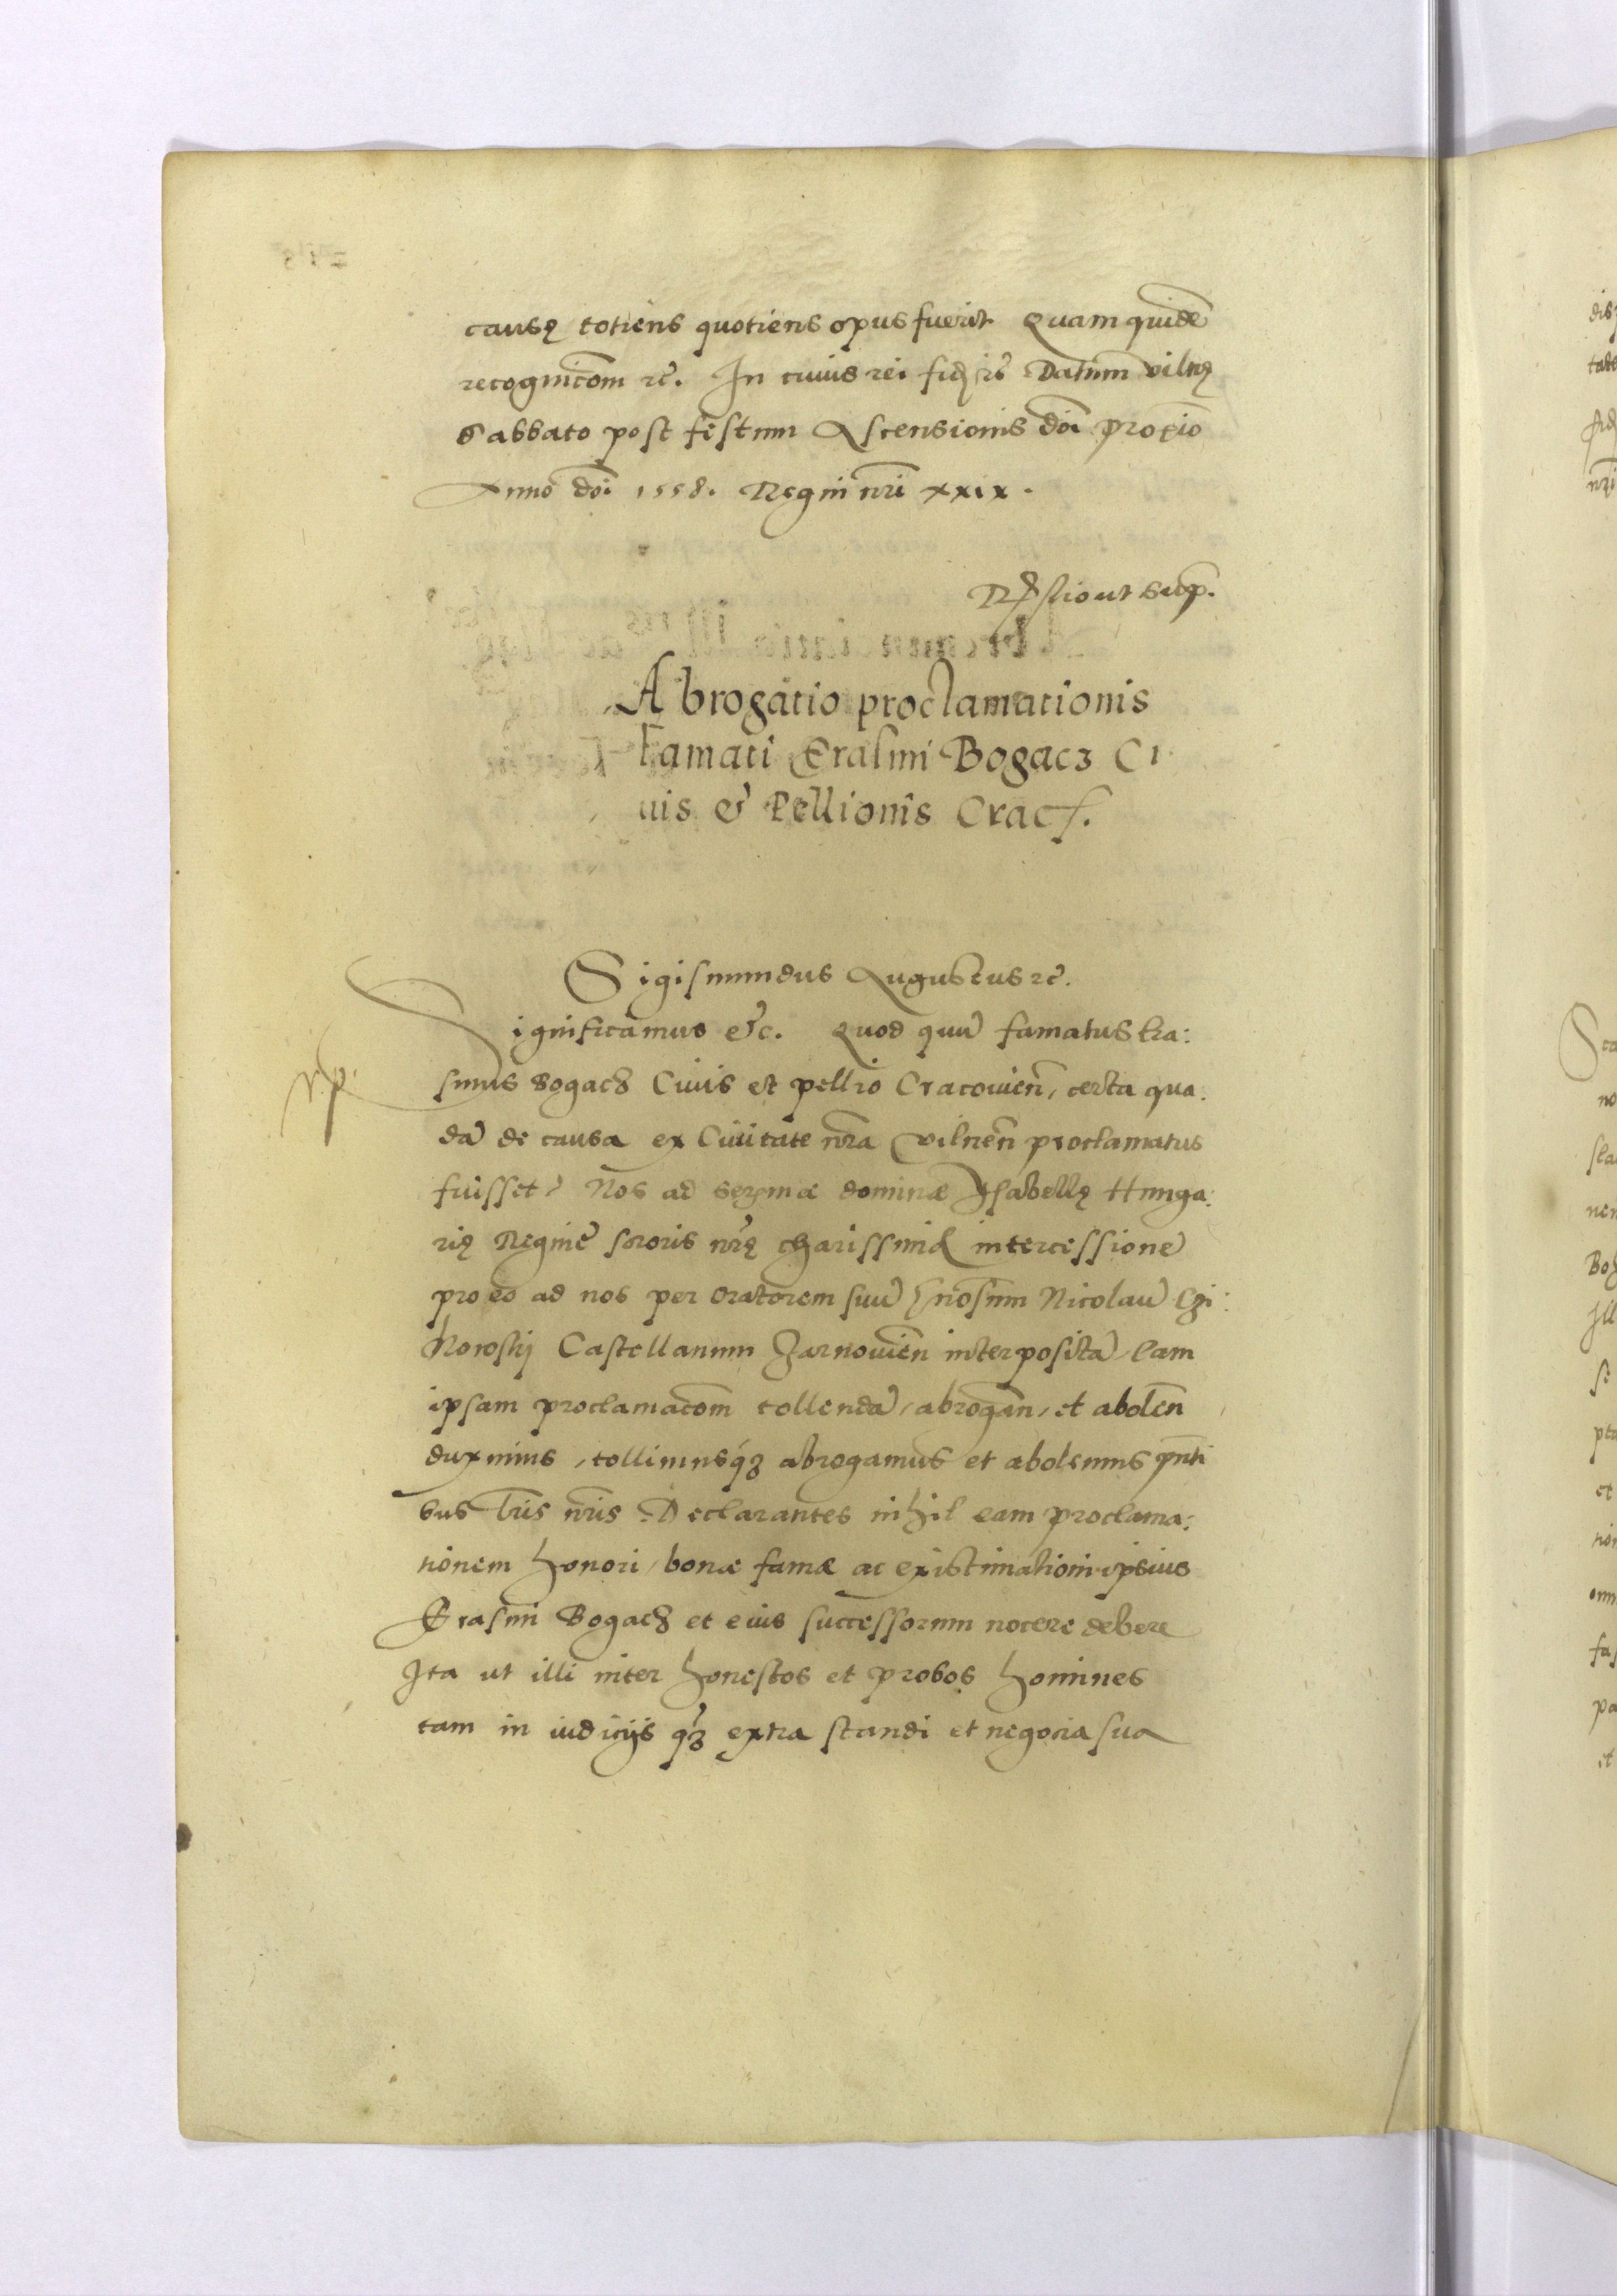 causę totiens quotiens opus fuerit Quam quidē
recognicōm rc̄. In cuius rei fidē rc̄ Datum Vilnę
Sabbato post festum Ascensionis dōi proxīo
Anno dōi 1558. Regni nr̄i xxix.
Rҍltio ut sup̄.
Abrogatio proclamationis
Famati Erasmi Bogacz Ci
uis & Pellionis Cracf.
Sigismundus Augustus rc̄.
Significamus &c. Quod quū famatus Era:
smus Bogacz Ciuis et pellio Cracouien̄, certa qua:
dā de causa ex Ciuitate nr̄a Vilnen̄ proclamatus
fuisset, Nos ad serm̄æ dominæ Isabellę Hunga:
rię Reginę sororis nr̄ę charissimæ intercessione
pro eo ad nos per oratorem suū Gnosum̄ Nicolaū
Castellanum Zarnouien̄ interpositā Eam
ipsam proclamacōm tollendā, abrogan̄, et abolen̄
duximus, tollimusq́ꝫ abrogamus et abolemus pn̄ti
bus lr̄is nr̄is. Declarantes nihil eam proclama:
tionem honori, bonæ famæ ac existimationi ipsius
Erasmi Bogacz et eius successorum nocere debere
Ita ut illi inter honestos et probos homines
tam in iudicijs q̄ꝫ extra standi et negocia sua